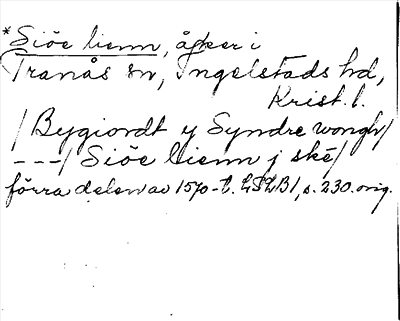 *Siöe lienn, åker i
Tranås sn, Ingelstads hd,
Krist. l.
/Bygiordt y Syndre wongh/
---/Siöe lienn j ske/
förra delen av 1570-t. LSLB1, s. 230. orig.